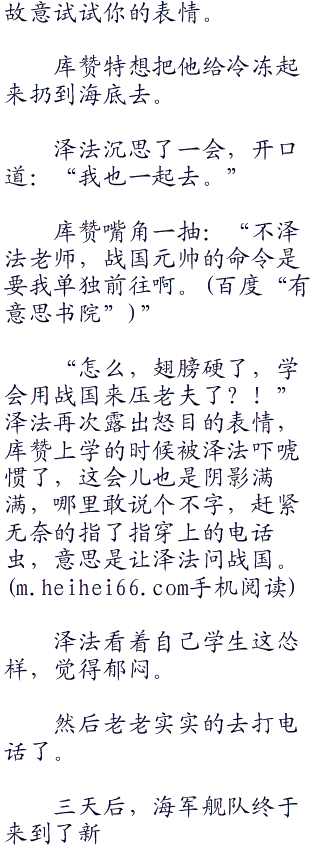 故意试试你的表情。
库赞特想把他给冷冻起
来扔到海底去。
泽法沉思了一会，开口
道：“我也一起去。”
库赞嘴角一抽：“不泽
法老师，战国元帅的命令是
要我单独前往啊。(百度“有
意思书院”)”
“怎么，翅膀硬了，学
会用战国来压老夫了？！”
泽法再次露出怒目的表情，
库赞上学的时候被泽法吓唬
惯了，这会儿也是阴影满
满，哪里敢说个不字，赶紧
无奈的指了指穿上的电话
虫，意思是让泽法问战国。
(m.heihei66.com手机阅读)
泽法看着自己学生这怂
样，觉得郁闷。
然后老老实实的去打电
话了。
三天后，海军舰队终于
来到了新